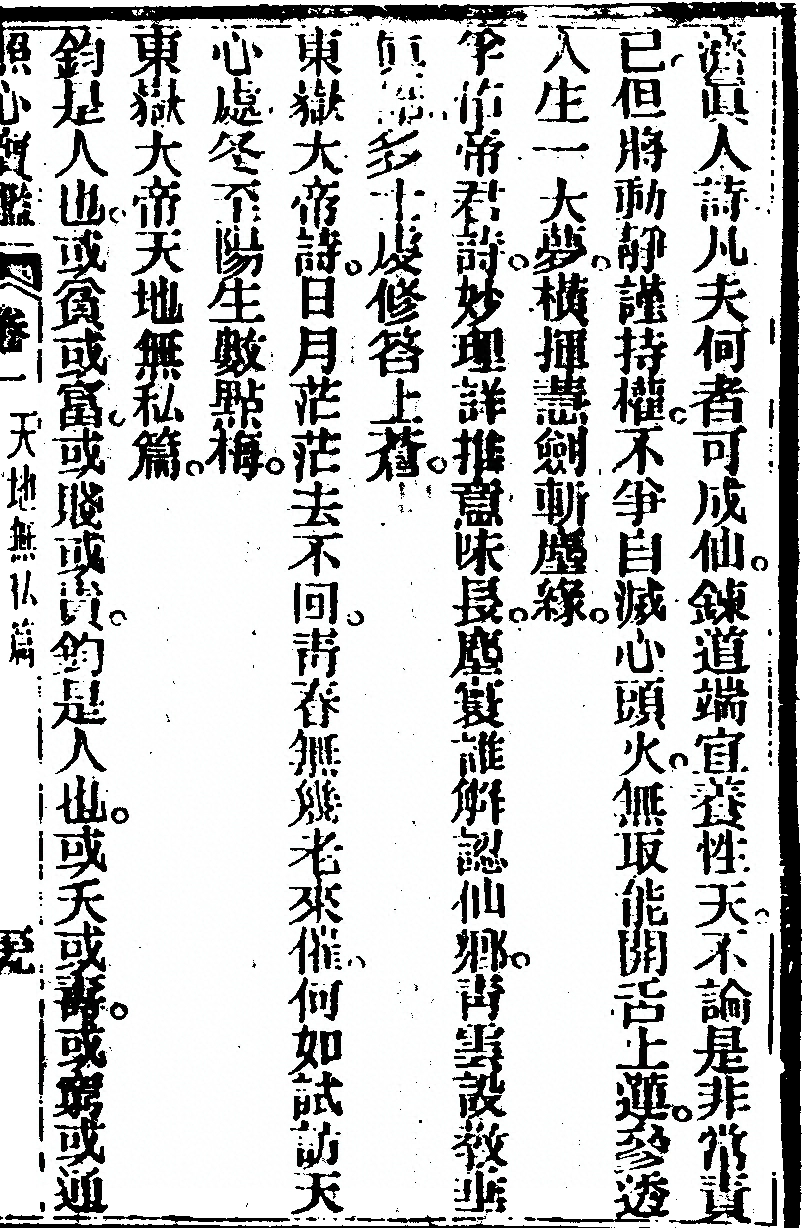 濟眞人詩凡夫何者可成仙。鍊道端宜養性天。不論是非常責
已。但將動靜謹持權。不爭自滅心頭火。無取能開舌上蓮。參透
人生一大夢。橫揮慧劍斬塵緣。
孚佑帝君詩。妙理詳推意味長。塵寰誰解認仙鄉。靑雲設教垂
眞諦。多士虔修答上蒼。
東嶽大帝詩。日月茫茫去不回。靑春無幾老來催。何如試訪天
心處。冬至陽生數點梅。
東嶽大帝天地無私篇。
鈞是人也。或貧或富。或賤或貴。鈞是人也。或夭或壽。或窮或通
照心寶鑑 卷一 天地無私篇